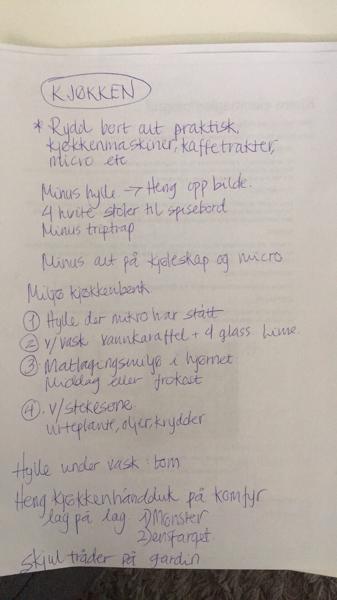 KJØKKEN
* Rydd bort alt praktisk,
kjøkkenmaskiner, kaffetrakter,
micro etc
Minus hylle -> Heng opp bilde.
4 hvite stoler til spisebord
Minus triptrap
Minus alt på kjøleskap og micro
Miljø kjøkkenbenk
① Hylle der mikro har stått
② v/vask vannkaraffel + 4 glass Lime.
③. Matlagingsmiljø i hjørnet
Middag eller frokost
④. v/stekesone
urteplante, oljer, krydder
Hylle under vask : tom
Heng kjøkkenhåndduk på komfyr
lag på lag 1) Mønster
2) ensfarget.
Skjul tråder på gardin